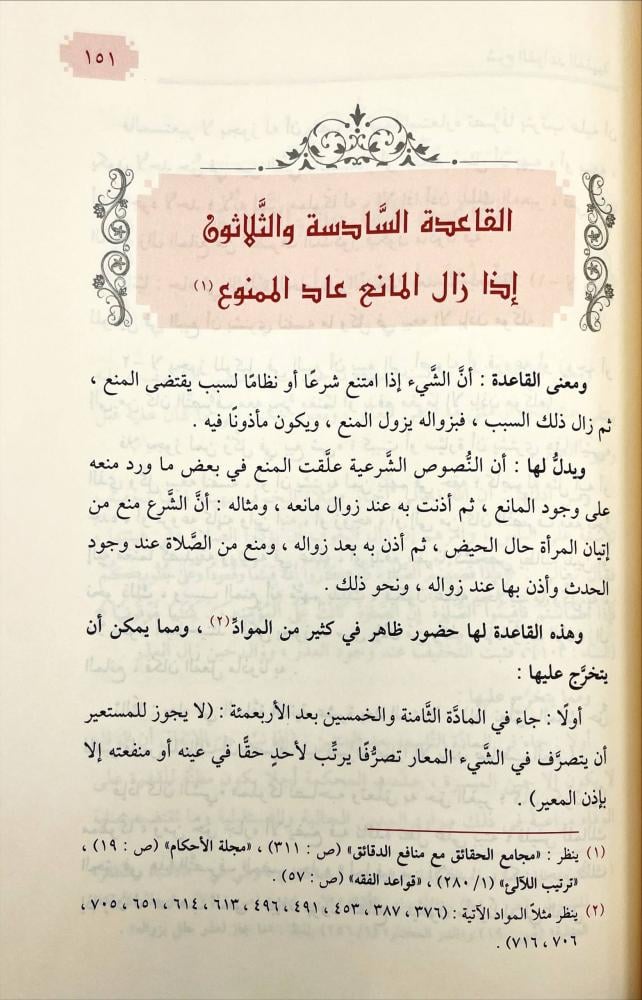 ١٥١
القاعدة السَّادسة والثَّلاثون
إذا زال المانع عاد الممنوع (١)
ومعنى القاعدة : أنَّ الشَّيء إذا امتنع شرعًا أو نظامًا لسبب يقتضى المنع ،
ثم زال ذلك السبب ، فبزواله يزول المنع ، ويكون مأذونًا فيه .
ويدلُّ لها : أن النُّصوص الشَّرعية علَّقت المنع في بعض ما ورد منعه
على وجود المانع ، ثم أذنت به عند زوال مانعه ، ومثاله : أنَّ الشَّرع منع من
إتيان المرأة حال الحيض ، ثم أذن به بعد زواله ، ومنع من الصَّلاة عند وجود
الحدث وأذن بها عند زواله ، ونحو ذلك .
وهذه القاعدة لها حضور ظاهر في كثير من الموادِّ (٢) ، ومما يمكن أن
يتخرَّج عليها :
أولًا : جاء في المادَّة الثَّامنة والخمسين بعد الأربعمئة : (لا يجوز للمستعير
أن يتصرَّف في الشَّيء المعار تصرُّفًا يرتِّب لأحدٍ حقًّا في عينه أو منفعته إلا
بإذن المعير) .
(١) ينظر : «مجامع الحقائق مع منافع الدقائق» (ص : ٣١١) ، «مجلة الأحكام» (ص : ١٩) ،
«ترتيب اللآلئ» (١/ ٢٨٠) ، «قواعد الفقه» (ص : ٥٧) .
(٢) ينظر مثلاً المواد الآتية : (٣٧٦ ، ٣٨٧ ، ٤٥٣ ، ٤٩١ ، ٤٩٦ ، ٦١٣ ، ٦١٤ ، ٦٥١ ، ٧٠٥ ،
٧٠٦ ، ٧١٦) .